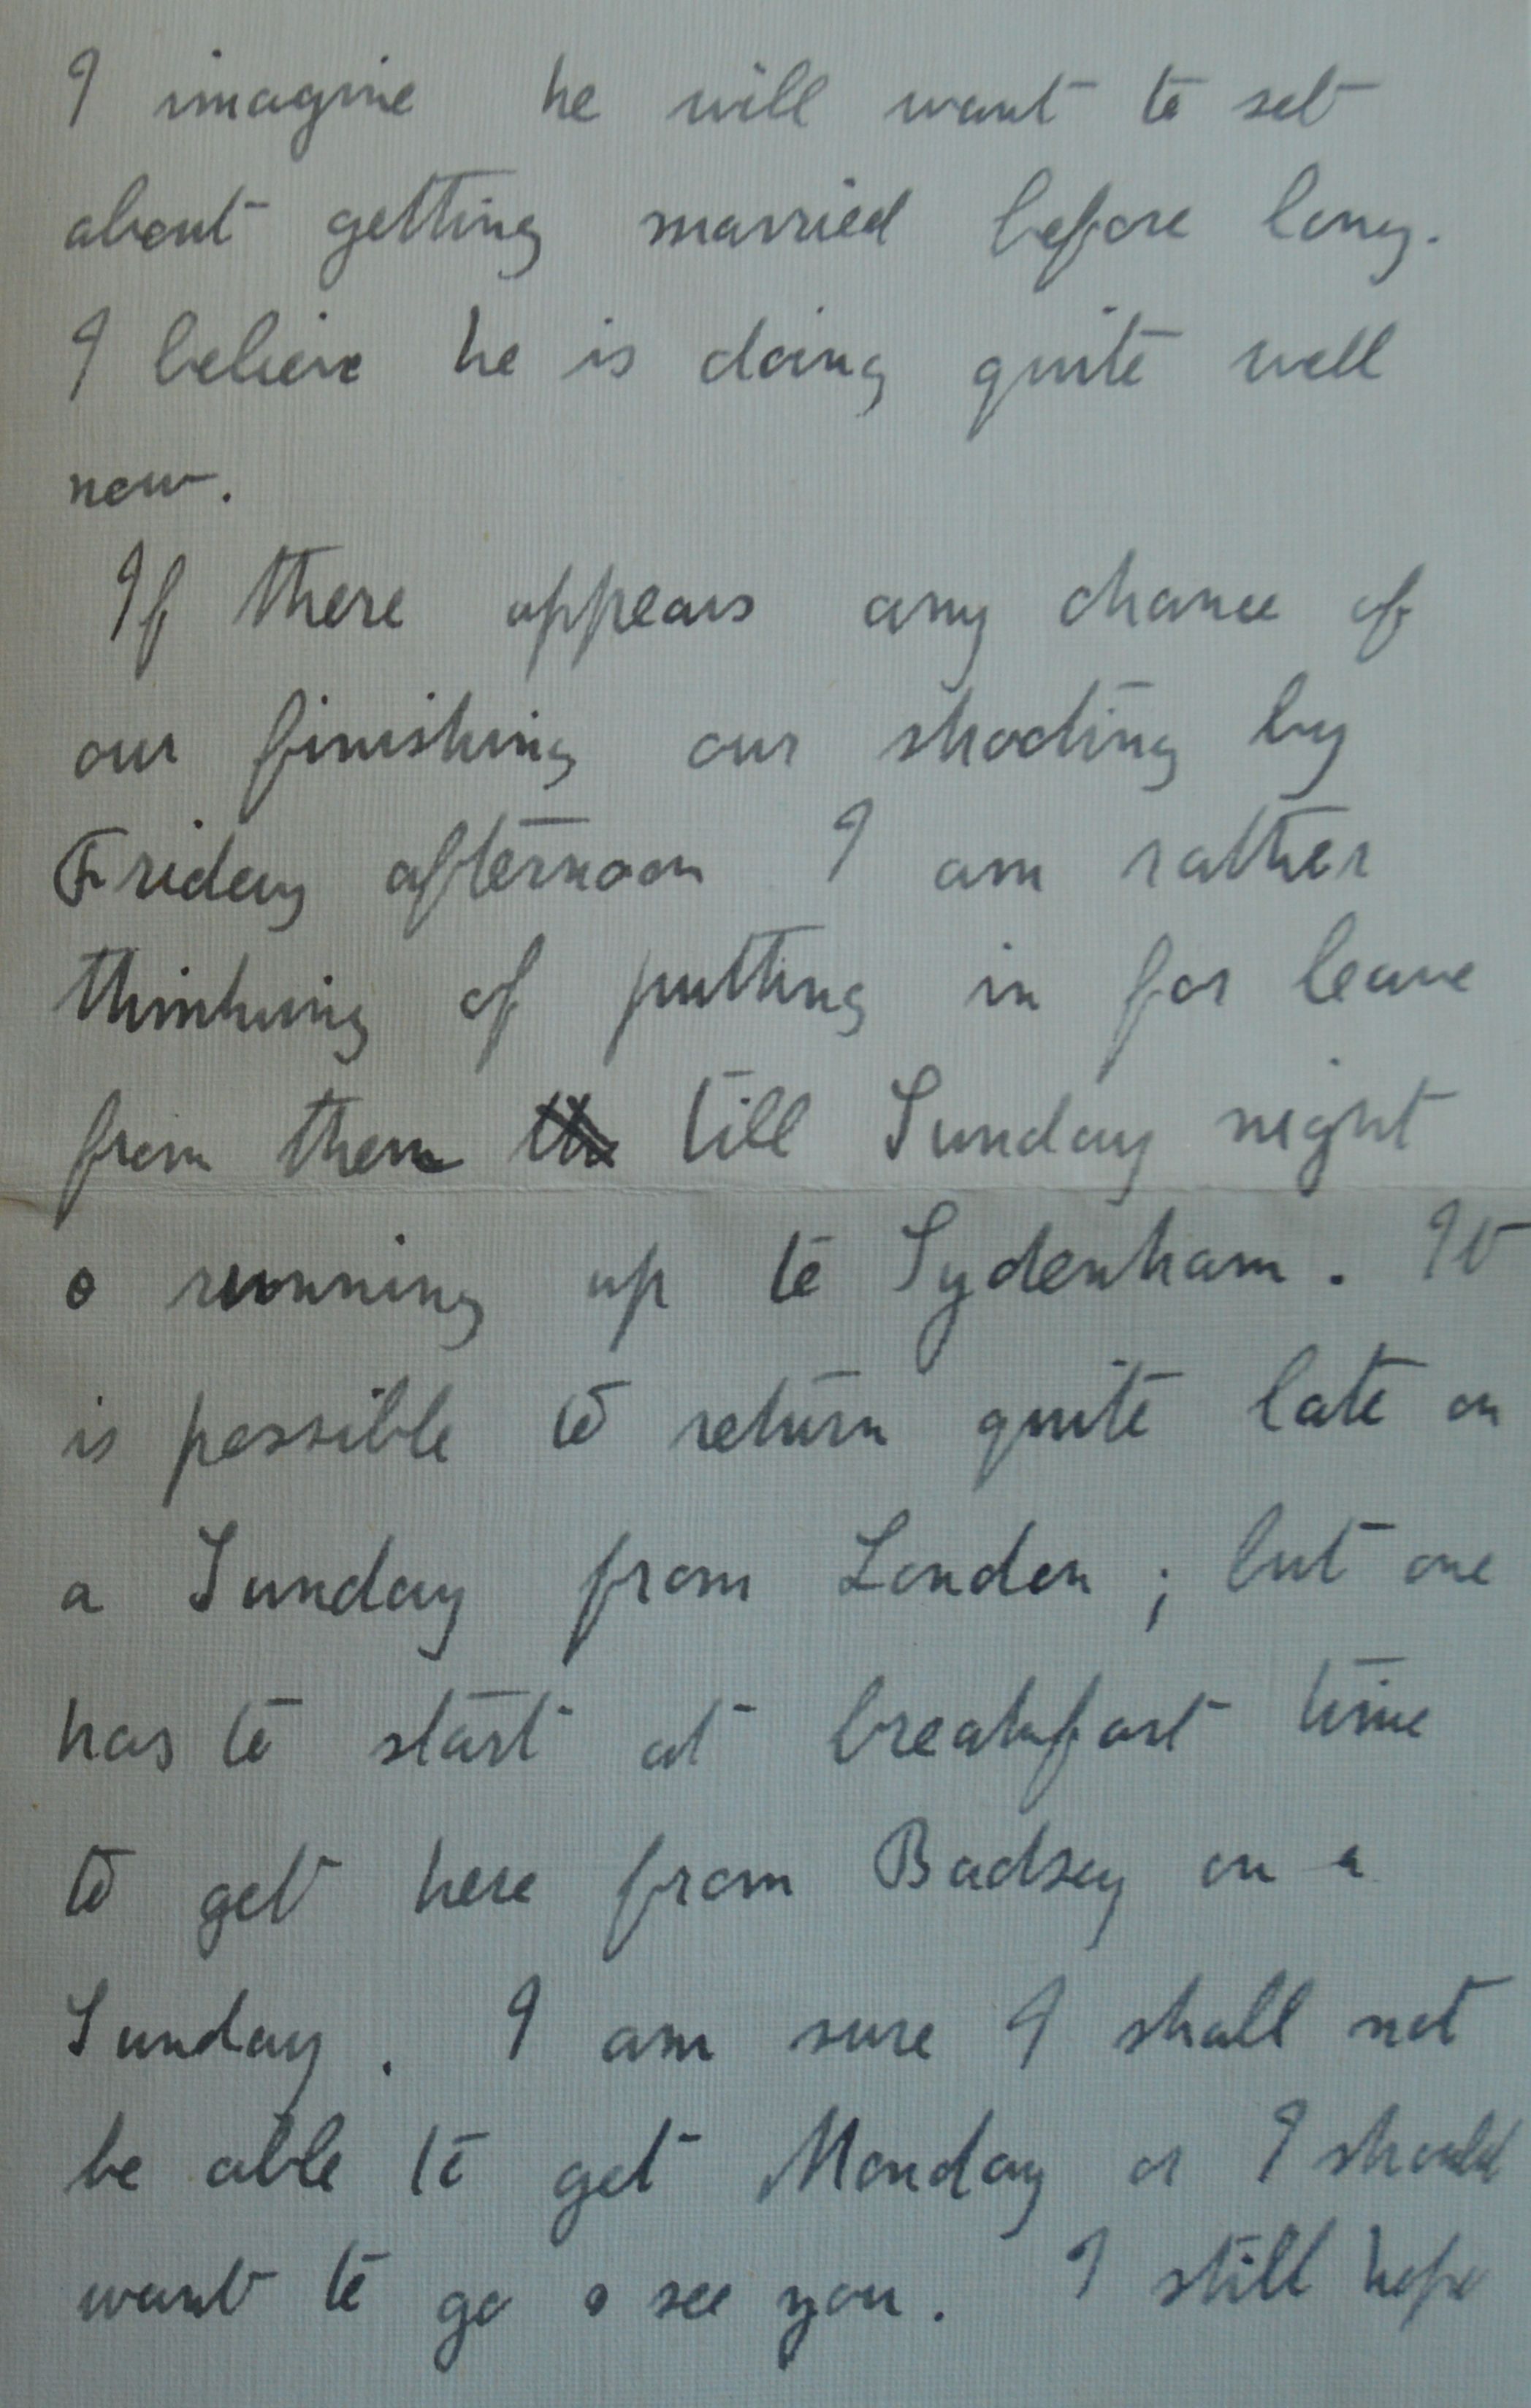 I imagine he will want to set
about getting married before long.
I believe he is doing quite well
now.
If there appears any chance of
our finishing our shooting by
Friday afternoon I am rather
thinking of putting in for leave
from then till Sunday night
& running up to Sydenham. It
is possible to return quite late on
a Sunday from London; but one
has to start at breakfast time
to get here from Badsey on a
Sunday. I am sure I shall not
be able to get Monday or I should
want to go & see you. I still hope